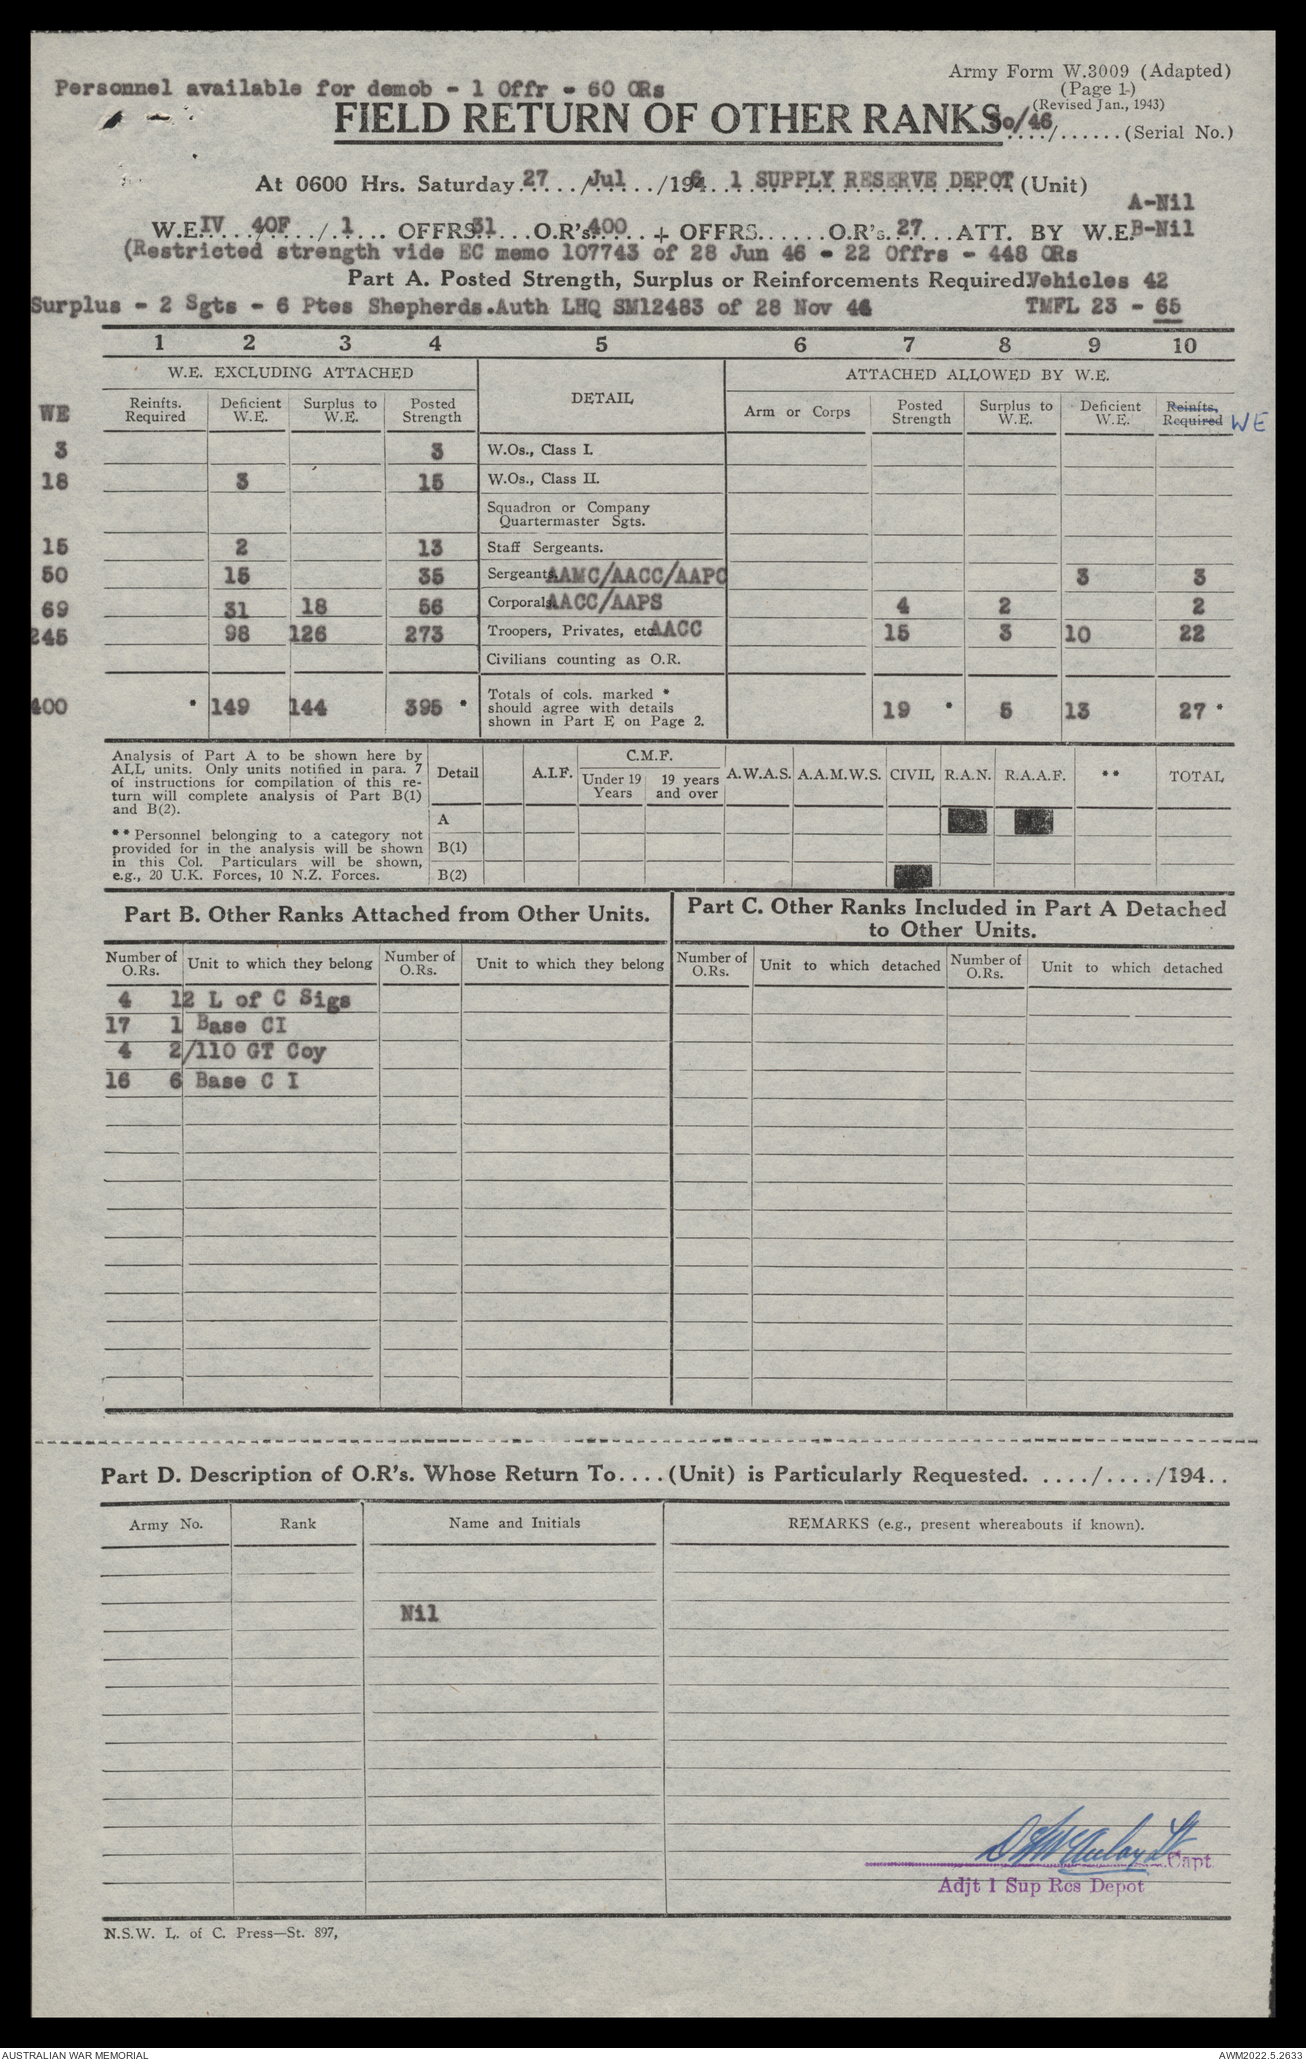 Personnel available for demob - 1 Offr - 60 ORs
Army Form W.3009 (Adapted)
(Page 1)
(Revised Jan., 1943)
FIELD RETURN OF OTHER RANKS
30/46 ..../......(Serial No.)
At 0600 Hrs. Saturday 27 / Jul /1946 1 SUPPLY RESERVE DEPOT (Unit)
A-Nil
W.E. IV 40F / 1 ... OFFRS 31 ... O.R's 400 ... + OFFRS...... O.R's. 27 ... ATT. BY W.E. B-Nil
(Restricted strength vide EC memo 107743 of 28 Jun 46 - 22 Offrs - 448 ORs
Part A. Posted Strength, Surplus or Reinforcements Required. Vehicles 42
Surplus - 2 Sgts - 6 Ptes Shepherds. Auth LHQ SM12483 of 28 Nov 44 TMFL 23 - 65
1 2 3 4 5 6 7 8 9 10
W.E. EXCLUDING ATTACHED DETAIL ATTACHED ALLOWED BY W.E.
WE Reinfts. Required Deficient W.E. Surplus to W.E. Posted Strength Arm or Corps Posted Strength Surplus to W.E. Deficient W.E. Reinfts. Required WE
3 3 W.Os., Class I.
18 3 15 W.Os., Class II.
Squadron or Company
Quartermaster Sgts.
15 2 13 Staff Sergeants.
50 15 35 Sergeants. AAMC/AACC/AAPC 3 3
69 31 18 56 Corporals. AACC/AAPS 4 2 2
245 98 126 273 Troopers, Privates, etc. AACC 15 3 10 22
Civilians counting as O.R.
400 * 149 144 395 * Totals of cols. marked * should agree with details shown in Part E on Page 2. 19 * 5 13 27 *
Analysis of Part A to be shown here by
ALL units. Only units notified in para. 7
of instructions for compilation of this re-
turn will complete analysis of Part B(1)
and B(2).
** Personnel belonging to a category not
provided for in the analysis will be shown
in this Col. Particulars will be shown,
e.g., 20 U.K. Forces, 10 N.Z. Forces.
Detail A.I.F. C.M.F. Under 19 Years 19 years and over A.W.A.S. A.A.M.W.S. CIVIL R.A.N. R.A.A.F. ** TOTAL
A
B(1)
B(2)
Part B. Other Ranks Attached from Other Units.
Part C. Other Ranks Included in Part A Detached
to Other Units.
Number of O.Rs. Unit to which they belong Number of O.Rs. Unit to which they belong Number of O.Rs. Unit to which detached Number of O.Rs. Unit to which detached
4 12 L of C Sigs
17 1 Base CI
4 2/110 GT Coy
16 6 Base C I
Part D. Description of O.R's. Whose Return To....(Unit) is Particularly Requested. ..../..../194..
Army No. Rank Name and Initials REMARKS (e.g., present whereabouts if known).
Nil
Capt
Adjt 1 Sup Res Depot
N.S.W. L. of C. Press—St. 897,
AUSTRALIAN WAR MEMORIAL
AWM2022.5.2633